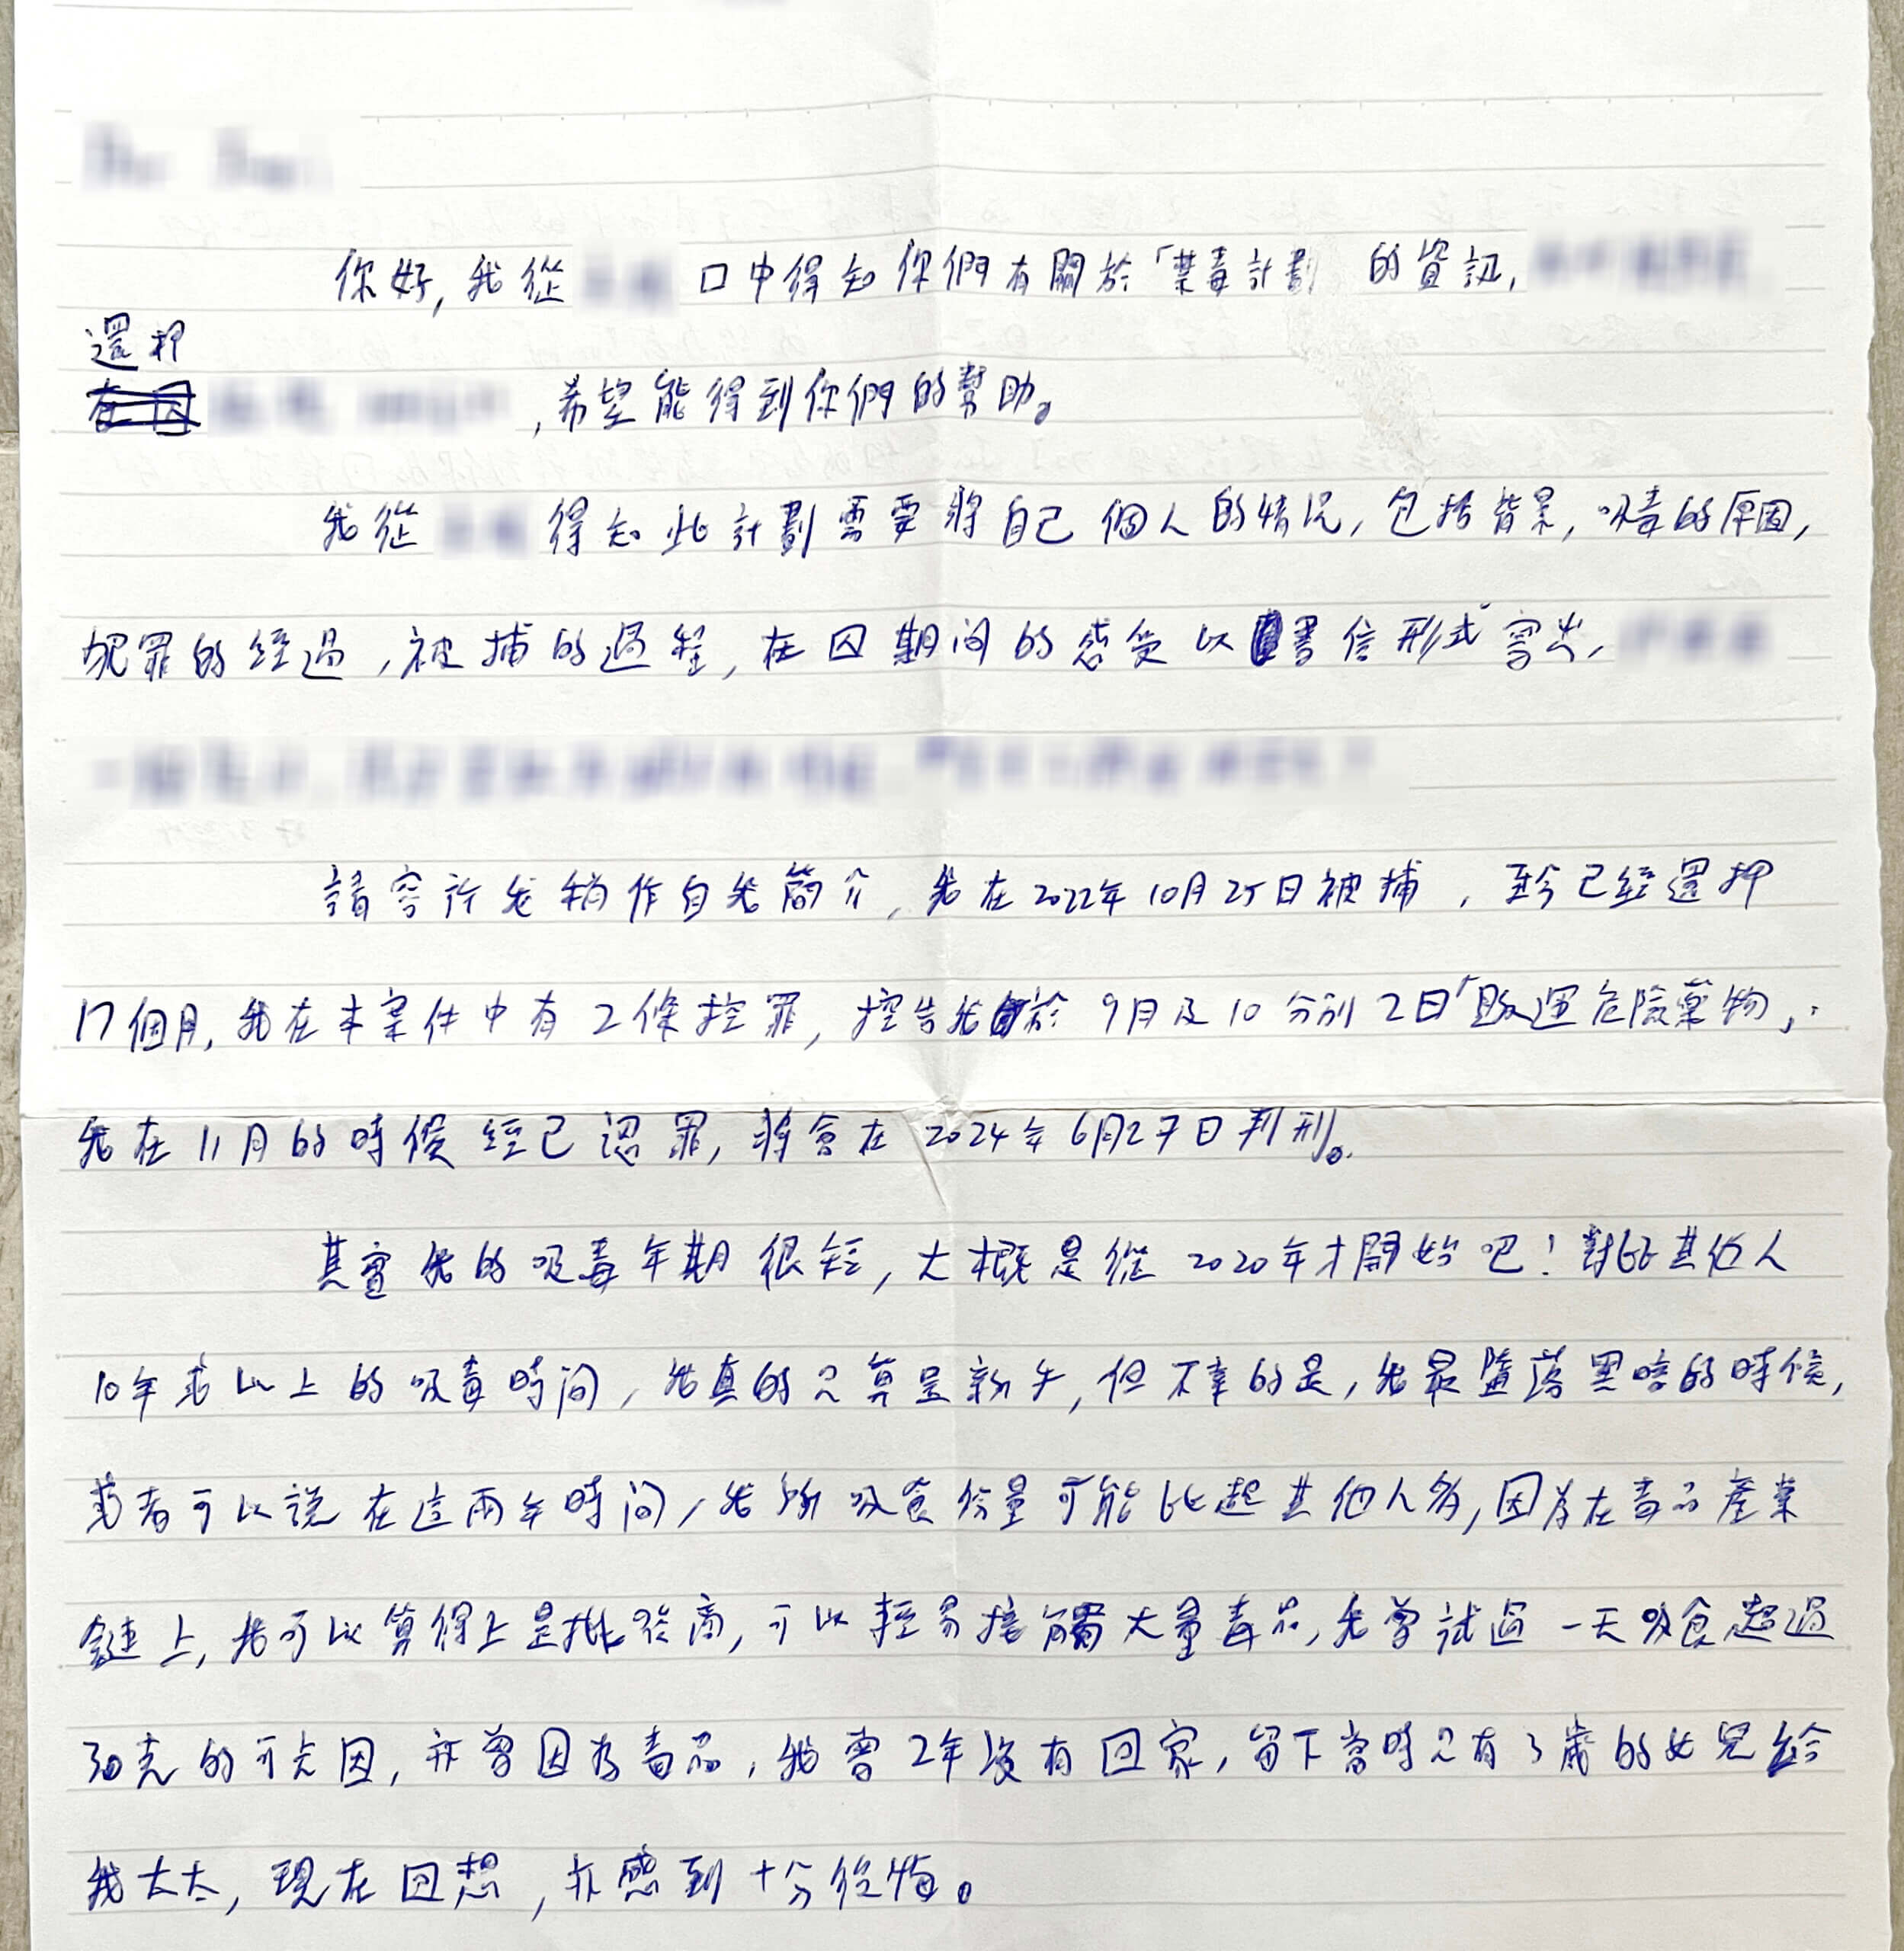 你好,我從 口中得知你們有關於「禁毒計劃 的資訊,
還押
,希望能得到你們的幫助。
我從 得知此計劃需要將自己個人的情況,包括背景,吸毒的原因,
犯罪的經過,被捕的過程,在囚期间的感受以書信形式寫出,
請容許我稍作自我簡介,我在2022年10月25日被捕,至今已經還押
17個月,我在本案件中有2條控罪,控告我於9月及10分別2日「販運危險藥物」.
我在11月的時候經已認罪,將會在2024年6月27日判刑。
其實我的吸毒年期很短,大概是從2020年才開始吧!對比其他人
10年或以上的吸毒時间,我真的只算是新手,但不幸的是,我最墮落黑暗的時候,
或者可以說在這兩年時间,我所吸食份量可能比起其他人多,因為在毒品產業
鏈上,我可以算得上是批發商,可以輕易接觸大量毒品,我曾試過一天吸食超過
30克的可卡因,亦曾因為毒品,我曾2年沒有回家,留下當時只有3歲的女兒給
我太太,現在回想,亦感到十分後悔。